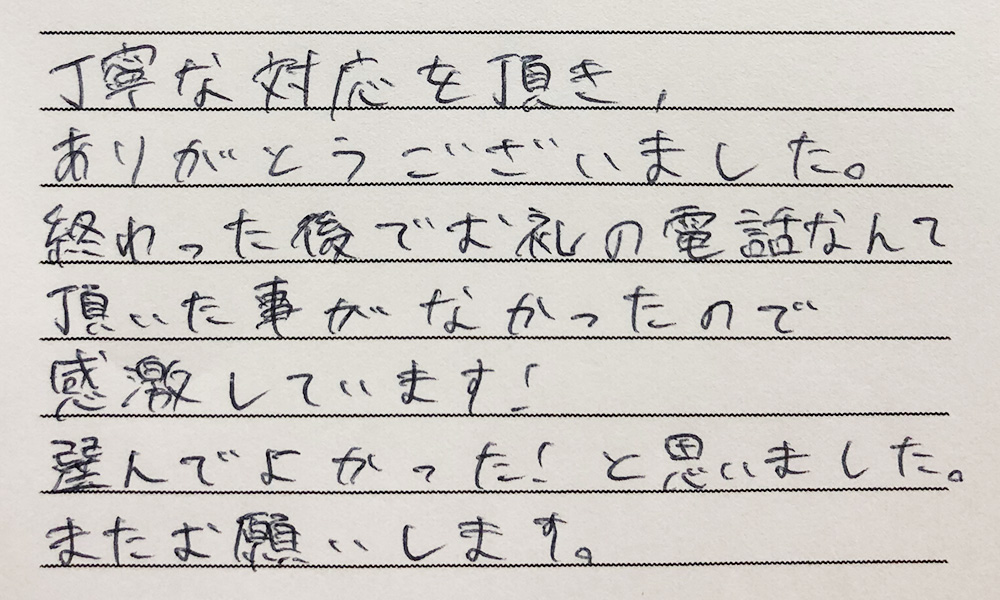 丁寧な対応を頂き,
ありがとうございました。
終わった後でお礼の電話なんて
頂いた事がなかったので
感激しています!
選んでよかった!と思いました。
またお願いします。